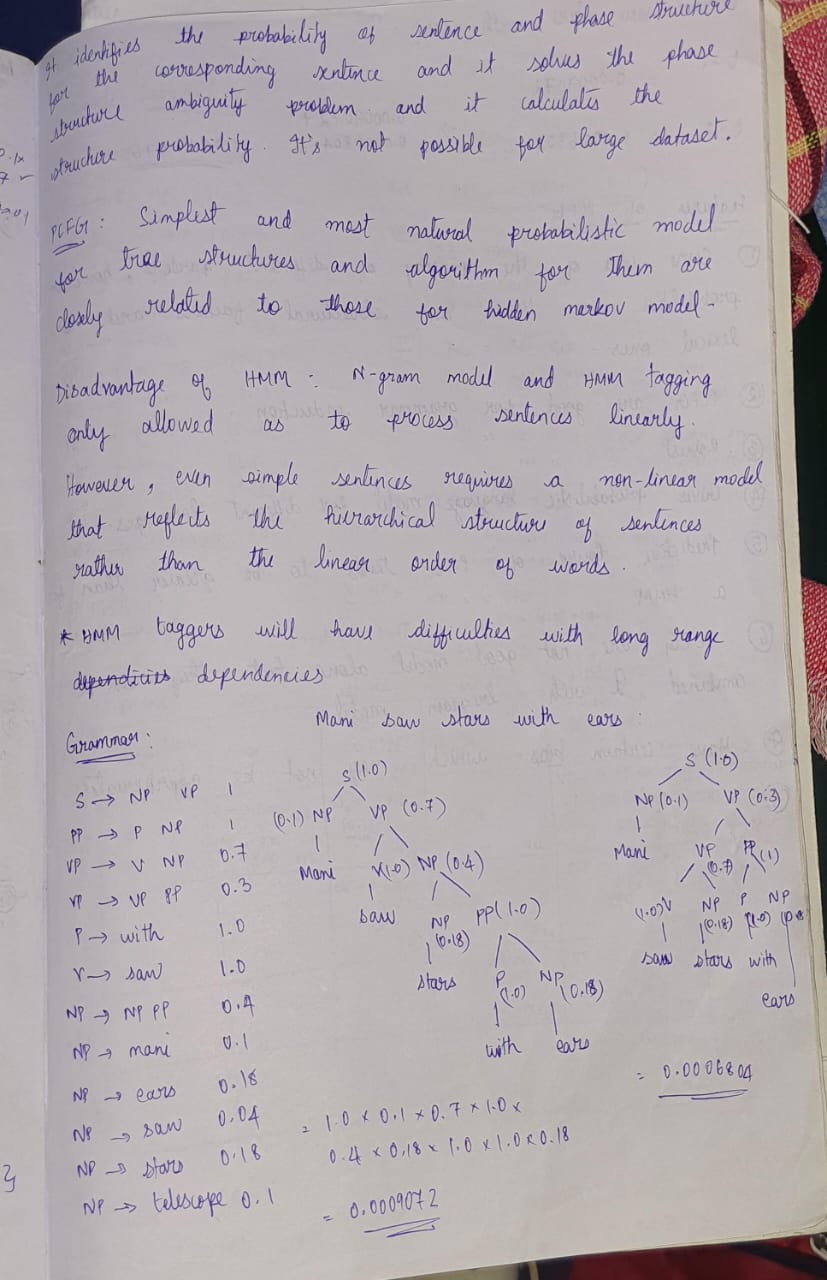 It identifies the probability of sentence and phase structure
for the corresponding sentence and it solves the phase
structure ambiguity problem and it calculates the
structure probability. It's not possible for large dataset.
PCFG: Simplest and most natural probabilistic model
for tree structures and algorithm for them are
closely related to those for hidden merkov model-
Disadvantage of HMM: N-gram model and HMM tagging
only allowed as to process sentences linearly.
However, even simple sentences requires a non-linear model
that reflects the hierarchical structure of sentences
rather than the linear order of words.
* HMM taggers will have difficulties with long range
dependencies
Mani saw stars with ears:
Grammar:
S → NP VP 1
PP → P NP 1
VP → V NP 0.7
VP → VP PP 0.3
P → with 1.0
V → saw 1.0
NP → NP PP 0.4
NP → mani 0.1
NP → ears 0.18
NP → saw 0.04
NP → stars 0.18
NP → telescope 0.1
S (1.0)
(0.1) NP VP (0.7)
Mani V(1.0) NP (0.4)
saw NP (0.18) PP (1.0)
stars P (1.0) NP (0.18)
with ears
= 1.0 x 0.1 x 0.7 x 1.0 x
0.4 x 0.18 x 1.0 x 1.0 x 0.18
= 0.0009072
S (1.0)
NP (0.1) VP (0.3)
Mani VP (0.7) PP (1)
(1.0) V NP (0.18) P (1.0) NP
saw stars with
ears
= 0.0006804